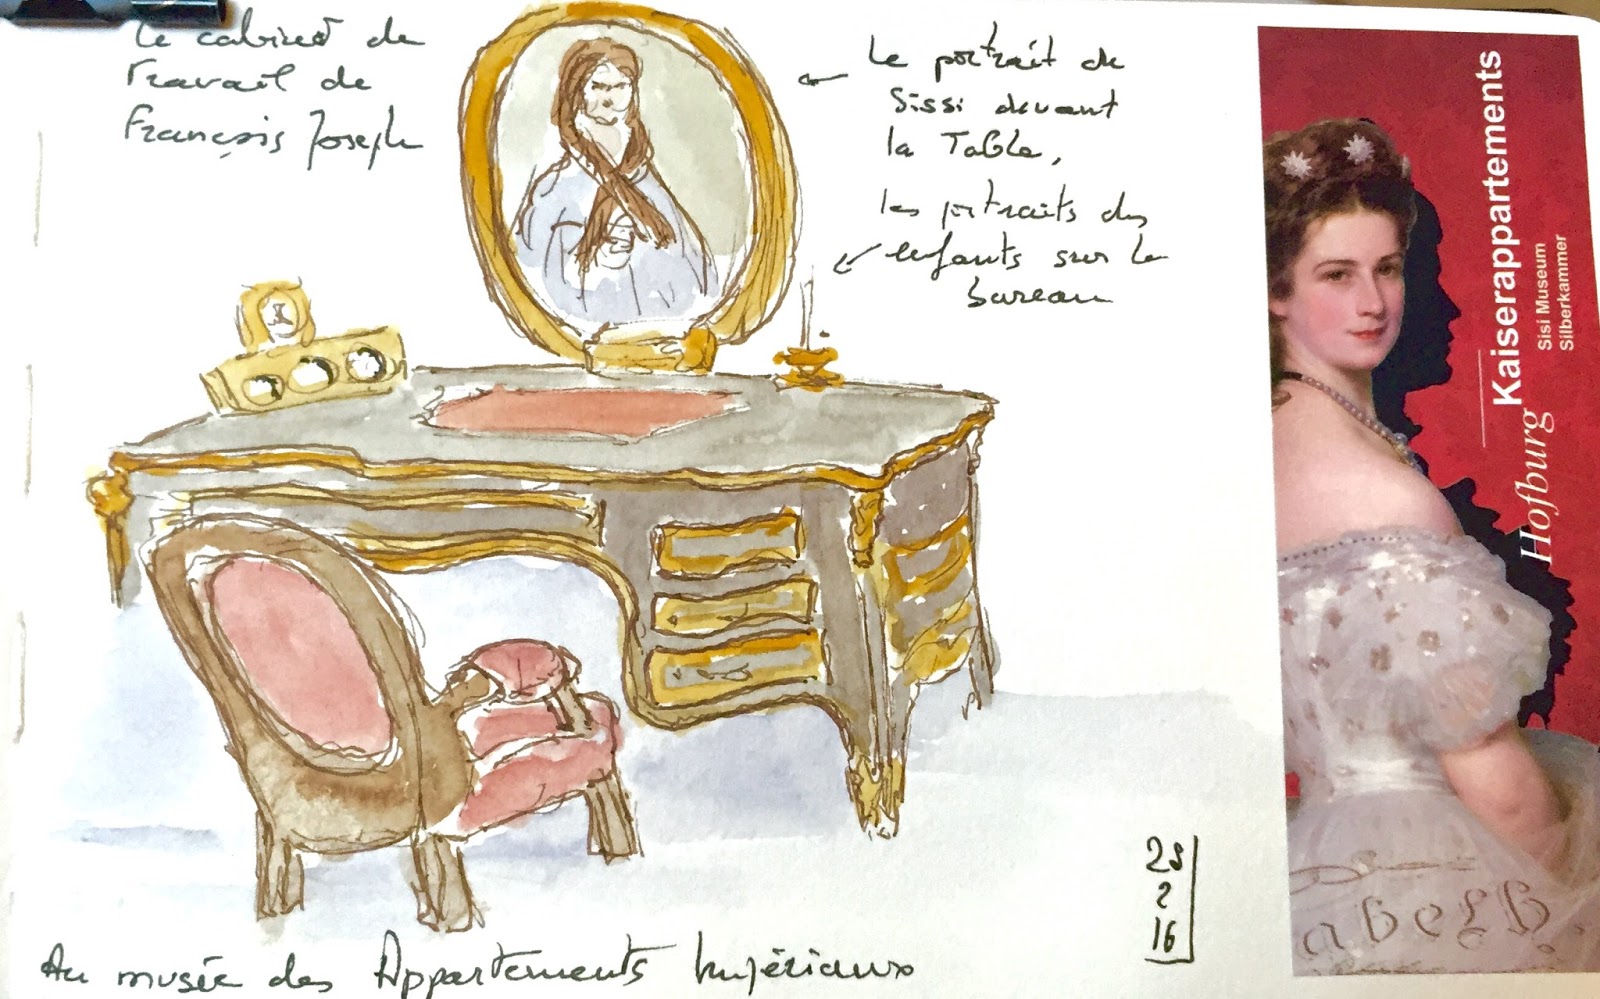 Le cabinet de
Travail de
François Joseph
Le portrait de
Sissi devant
la Table,
les portraits des
enfants sur le
bureau
Kaiserappartements
Hofburg
Sisi Museum
Silberkammer
2
16
Au musée des Appartements Impériaux